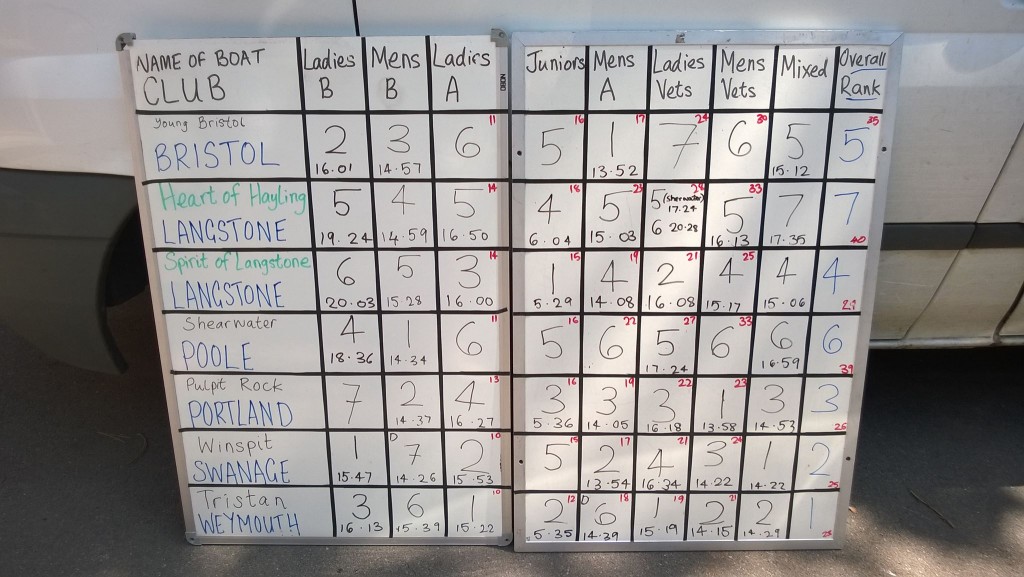 NAME OF BOAT CLUB Ladies B Mens B Ladies A Juniors Mens A Ladies Vets Mens Vets Mixed Overall Rank
Young Bristol BRISTOL 2 16.01 3 14.57 6 11 5 16 1 17 13.52 7 24 6 30 5 15.12 5 35
Heart of Hayling LANGSTONE 5 19.24 4 14.59 5 14 16.50 4 18 6.04 5 23 15.03 5 (Sherwater) 17.24 6 20.28 5 33 16.13 7 17.35 7 40
Spirit of Langstone LANGSTONE 6 20.03 5 15.28 3 14 16.00 1 15 5.29 4 19 14.08 2 21 16.08 4 25 15.17 4 15.06 4 29
Shearwater POOLE 4 18.36 1 14.34 6 11 5 16 6 22 5 27 17.24 6 33 6 16.59 6 39
Pulpit Rock PORTLAND 7 2 14.37 4 13 16.27 3 16 5.36 3 19 14.05 3 22 16.18 1 23 13.58 3 14.53 3 26
Winspit SWANAGE 1 15.47 D 7 14.26 2 10 15.53 5 15 2 17 13.54 4 21 16.34 3 24 14.22 1 14.22 2 25
Tristan WEYMOUTH 3 16.13 6 15.39 1 10 15.22 2 12 5.35 D 6 18 14.39 1 19 15.19 2 21 14.15 2 14.29 1 23